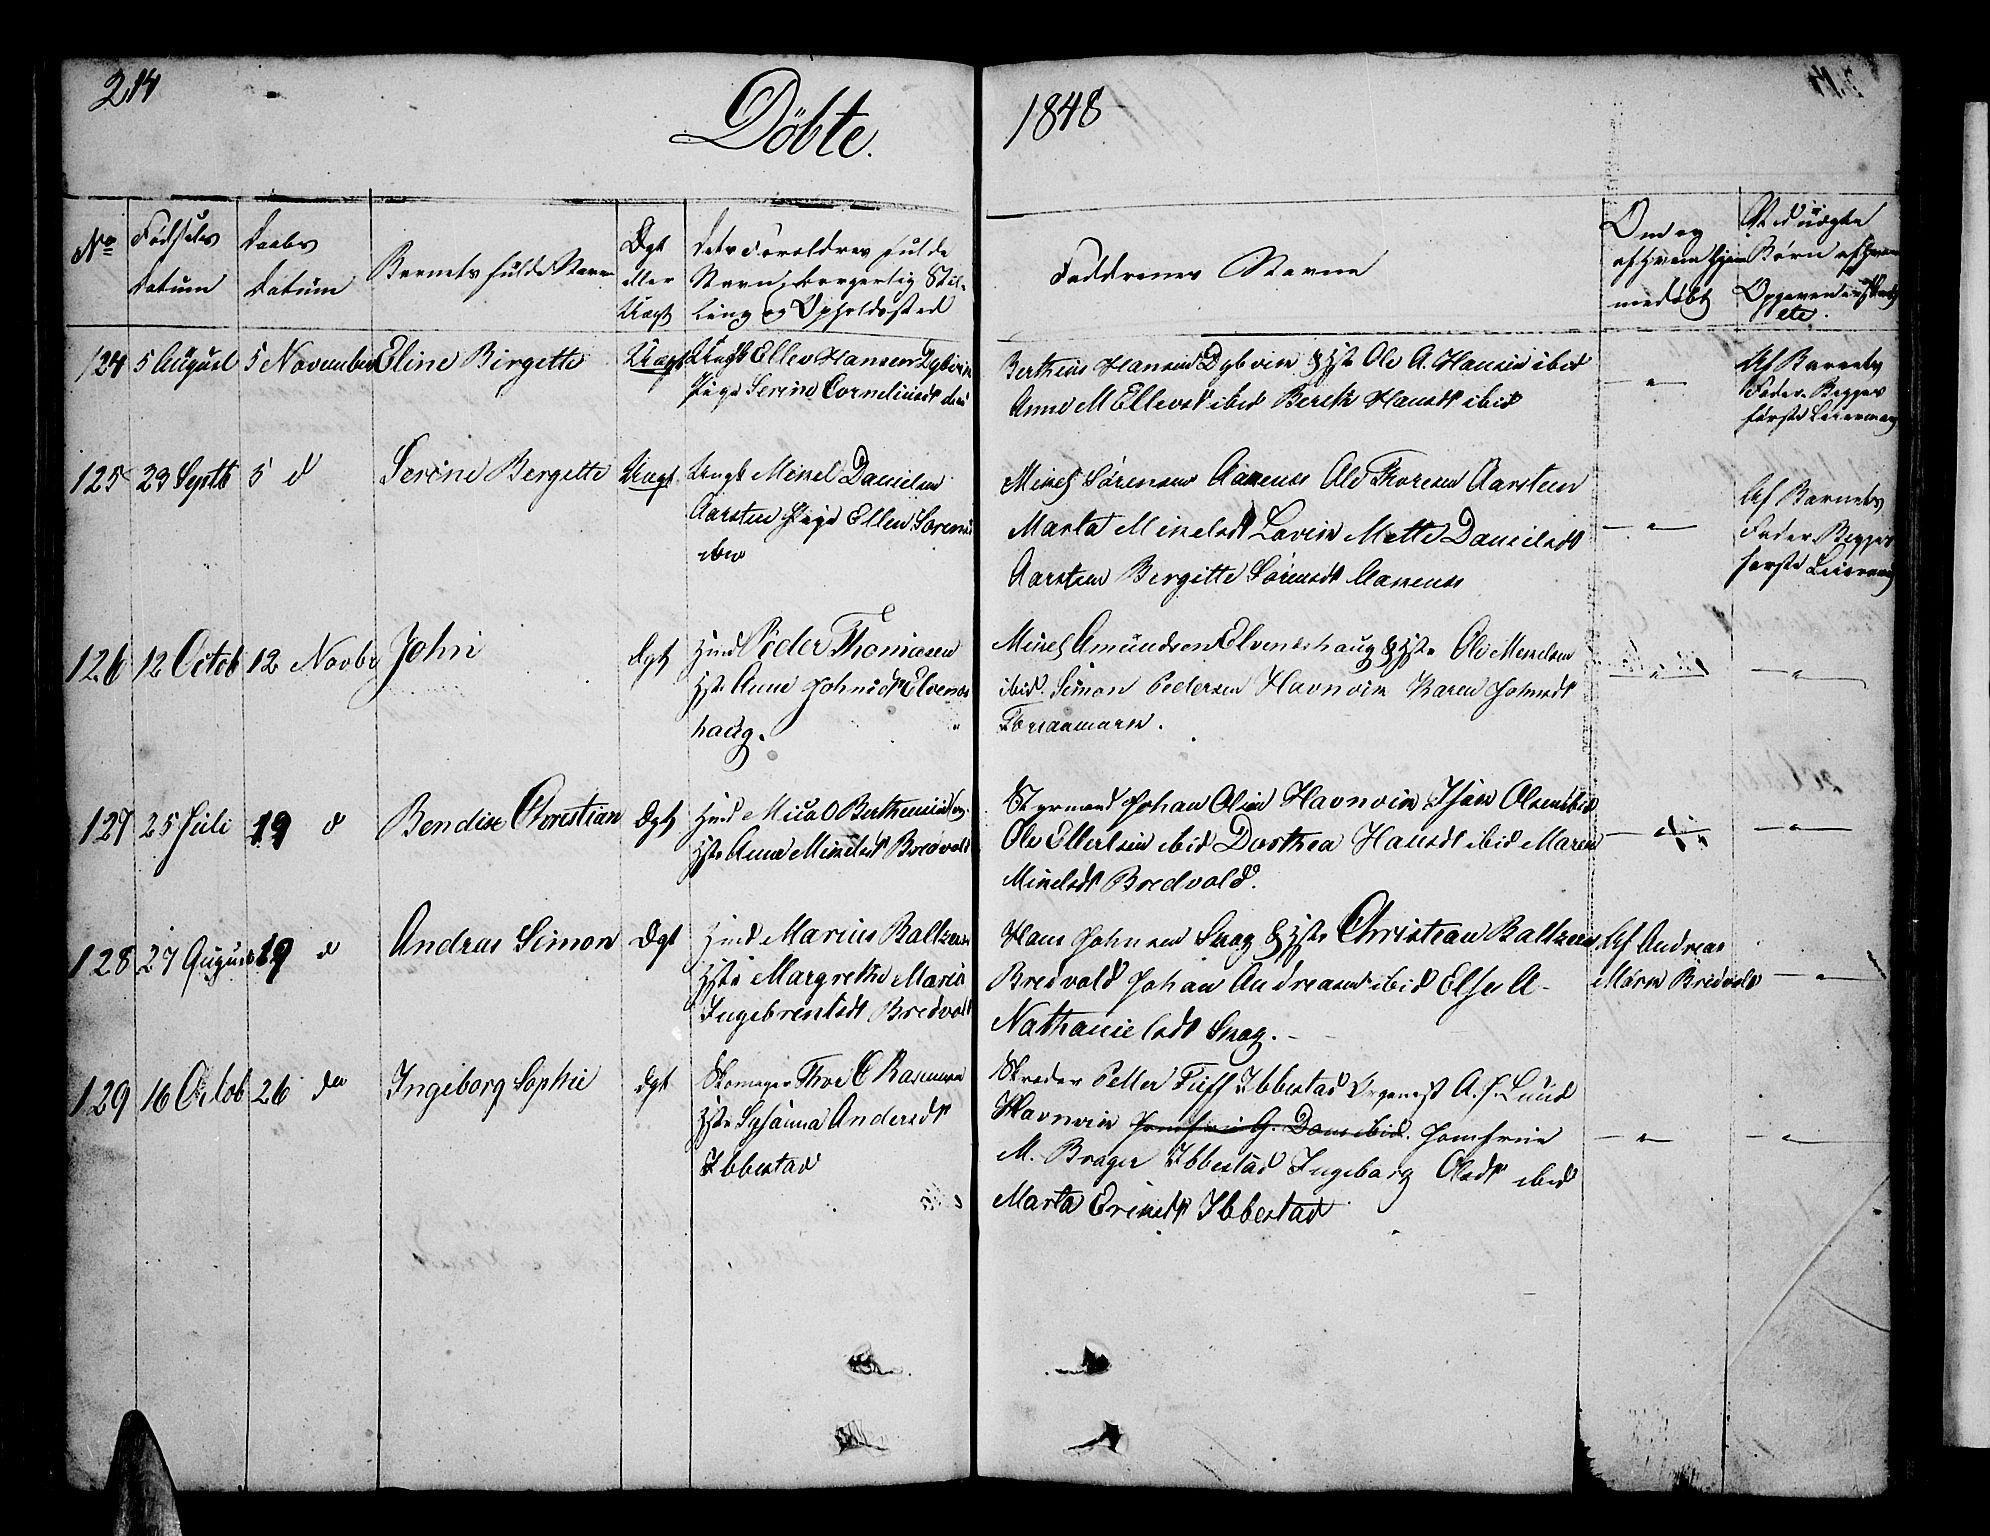 214
Döbte.
1848
No
Fødsels
Datum
Daabs
Datum
Barnets fulde Navn
Ægt
eller
Uægt
Dets Forældres fulde
Navn, borgerlig Stil-
ling og Opholdssted
Faddrenes Navne
Om og
af hvem hjem
medøbt
Ved uægte
Børn af hvem
Opgaven
etc.
124 5 August 5 November Eline Birgette Uægt Ungk Ellev Hansen Dybvik
Pige Serine Cornelius dt
Bertheus Hansen Dybvik & Hst Ole A. Hansen ibid
Anne M Ellevsdt ibid Bereth Hansdt ibid
Af Barnets
Fader. Begges
første Leiermaal
125 23 Septb 5 d Serine Bergette Uægt Ungk Mikel Danielsen
Aarsten Pige Ellen Sørens
ibid
Mikel Sørensen Aanenes Ole Thoresen Aarsteen
Marta Mikelsdt Lavik Mette Danielsdt
Aarsteen Bergitte Sørensdt Aanenes
Af Barnets
Fader. Begges
første Leiermaal
126 12 Octob 12 Novbr John Ægt Hmd Peder Thomasen
Hst Anne Johnsdt Elvenes
haug.
Mikel Amundsen Elveneshaug & Hst Ole Mikelsen
ibid. Simon Pedersen Havnvik Karen Johnsdt
127 25 Juli 19 d Bendix Christian Ægt Hmd Mica O Bertheusen og
Hst Anne Mikelsdt Bredvold
Styrmand Johan Olsen Havnvik Isak Olsen ibid
Ole Ellertsen ibid Dorthea Hansdt ibid Maren
Mikelsdt Bredvold.
128 27 August 19 d Andreas Simon Ægt Hmd Marius Baltzersen
Hst Margrethe Maria
Ingebrentsdt Bredvold
Hans Johnsen Krag & Hst Christean Baltzersen
Bredvold Johan Andreasen ibid Else A-
Nathanielsdt Krag.
Af Andreas
Mørk Bredvold
129 16 Octob 26 do Ingeborg Sophie Ægt Skomager Thor C Rasmusen
Hst Susanna Andersdt
Ibbestad
Skreder Petter Tieff Ibbestad Organist A. J. Lund
Havnvik Jomfrue G. Dons ibid. Jomfrue
M. Brager Ibbestad Ingeborg Olsdt ibid
Marta Eriksdt Ibbestad